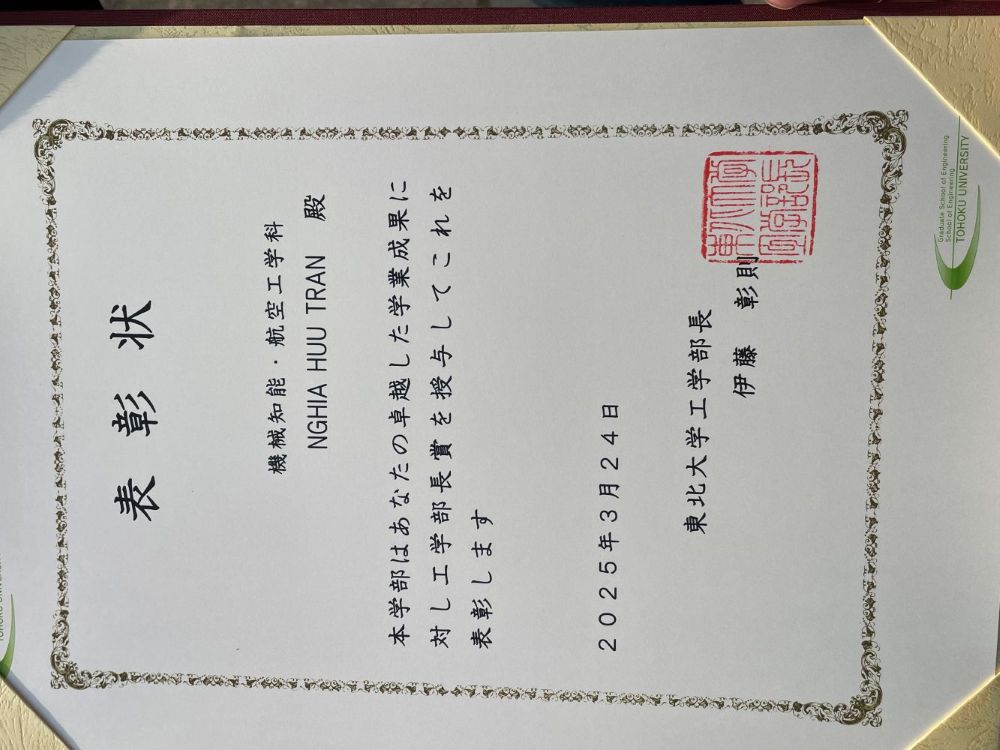 表彰状
機械知能・航空工学科
NGHIA HUU TRAN 殿
本学部はあなたの卓越した学業成果に
対し工学部長賞を授与してこれを
表彰します
2025年3月24日
東北大学工学部長
伊藤 彰則
Graduate School of Engineering
School of Engineering
TOHOKU UNIVERSITY